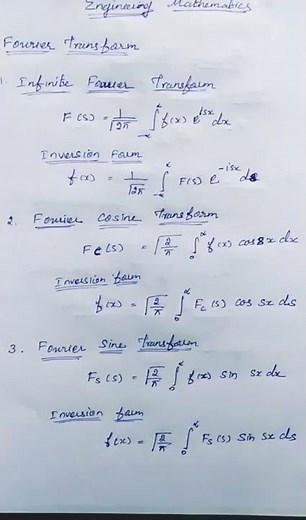 Engineering Mathematics
Fourier Transform
1. Infinite Fourier Transform
F(s) = 1/√2π ∫_{-∞}^{∞} f(x) e^{isx} dx
Inversion Form
f(x) = 1/√2π ∫_{-∞}^{∞} F(s) e^{-isx} ds
2. Fourier Cosine Transform
Fc(s) = √2/π ∫_0^∞ f(x) cos sx dx
Inversion form
f(x) = √2/π ∫_0^∞ Fc(s) cos sx ds
3. Fourier Sine Transform
Fs(s) = √2/π ∫_0^∞ f(x) sin sx dx
Inversion form
f(x) = √2/π ∫_0^∞ Fs(s) sin sx ds